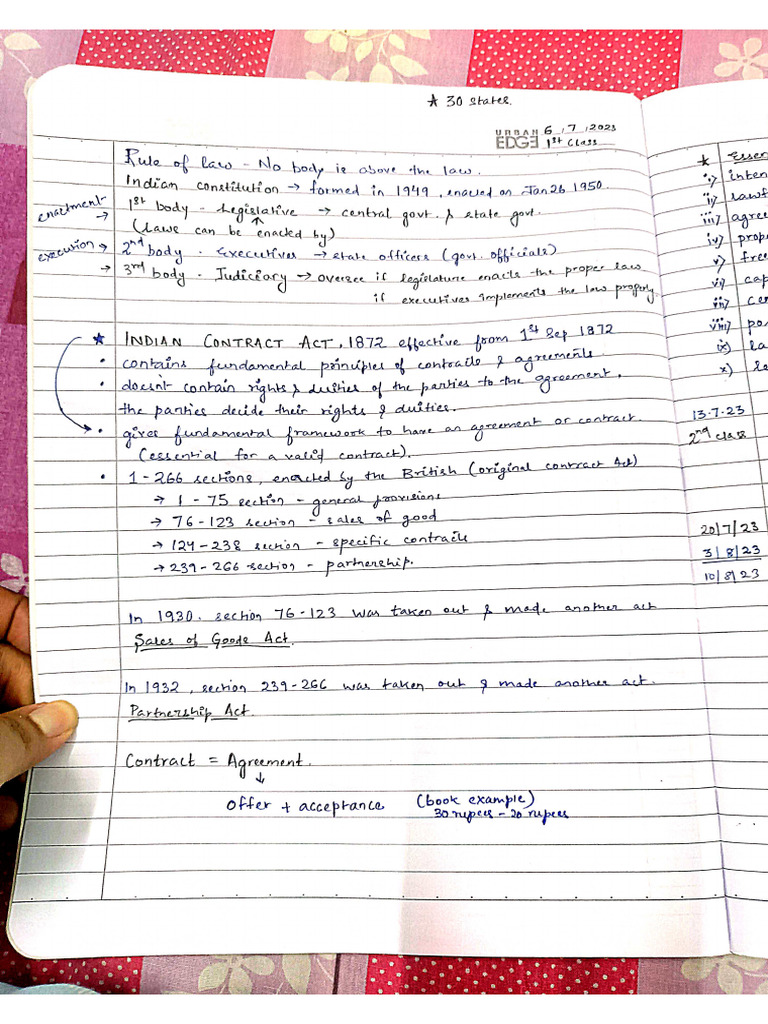 ★ 30 states.
URBAN EDGE 6,7,2023
1st Class
Rule of law - No body is above the law.
Indian constitution → formed in 1949, enacted on Jan 26 1950.
enactment → 1st body - Legislative → central govt. & state govt.
(laws can be enacted by)
execution → 2nd body - Executives → state officers (govt. officials)
→ 3rd body - Judiciary → oversee if legislature enacts the proper law
if executives implements the law properly.
★ INDIAN CONTRACT ACT, 1872 effective from 1st Sep 1872
• contains fundamental principles of contracts & agreements
• doesn't contain rights & duities of the parties to the agreement.
• the parties decide their rights & duities.
• gives fundamental framework to have an agreement or contract.
(essential for a valid contract).
• 1 - 266 sections, enacted by the British (original contract Act)
→ 1 - 75 section - general provisions
→ 76 - 123 section - sales of good
→ 124 - 238 section - specific contracts
→ 239 - 266 section - partnership.
In 1930. section 76-123 was taken out & made another act
Sales of Goods Act.
In 1932, section 239-266 was taken out & made another act.
Partnership Act.
Contract = Agreement.
↓
offer + acceptance (book example)
30 rupees - 20 rupees
★ Essen
i) inten
ii) lawf
iii) agree
iv) prop
v) free
vi) cap
vii) cer
viii) pos
ix) la
x) le
13.7.23
2nd class
20/7/23
3/8/23
10/8/23